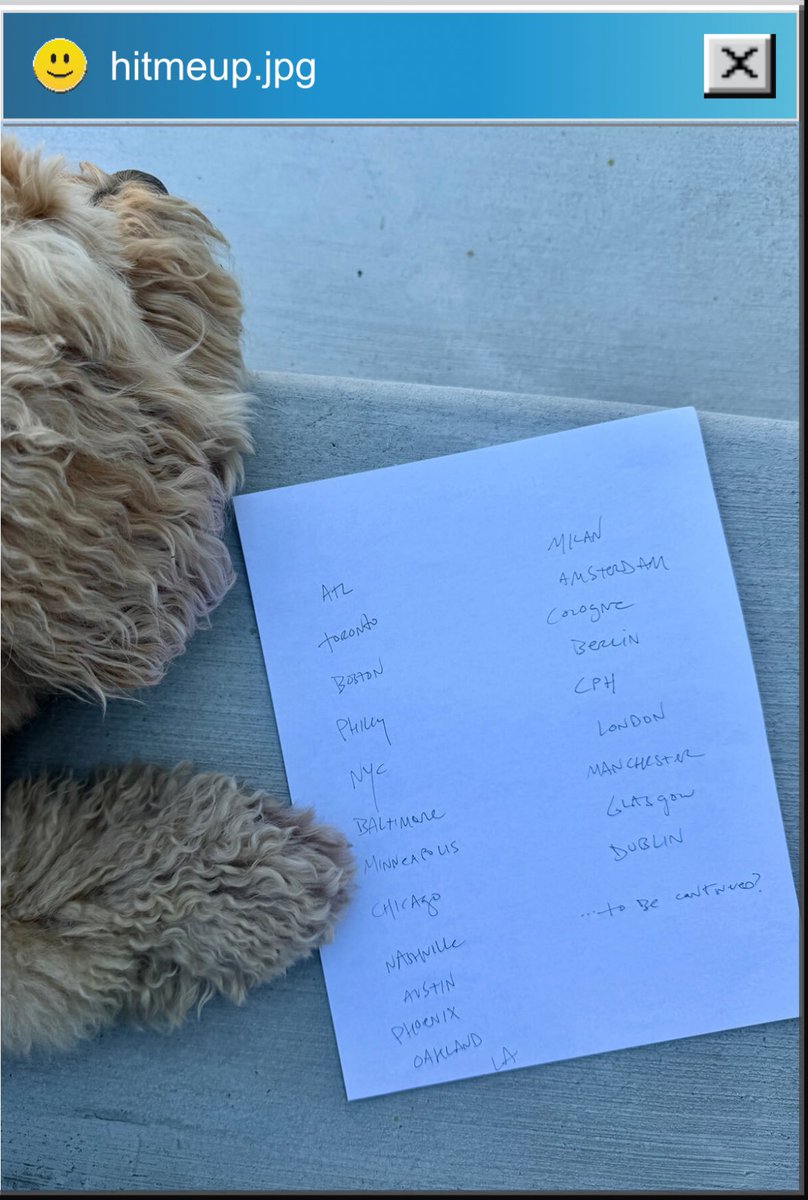 hitmeup.jpg
ATL
TORONTO
BOSTON
PHILLY
NYC
BALTIMORE
MINNEAPOLIS
CHICAGO
NASHVILLE
AUSTIN
PHOENIX
OAKLAND
LA
MILAN
AMSTERDAM
COLOGNE
BERLIN
CPH
LONDON
MANCHESTER
GLASGOW
DUBLIN
...to BE continued?